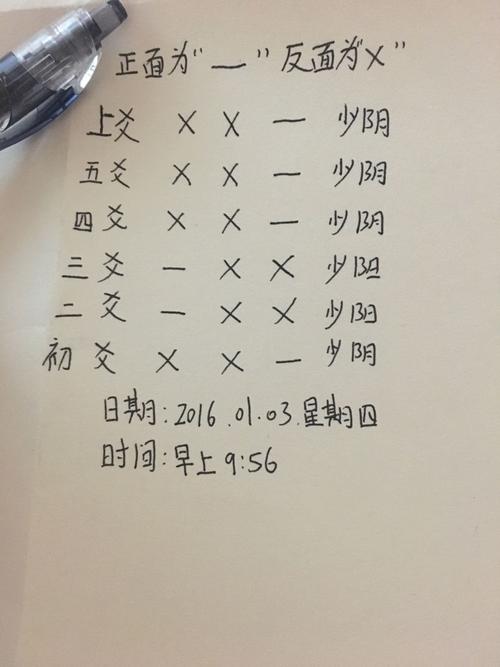 正面为“—”反面为“X”
上爻 X X — 少阴
五爻 X X — 少阴
四爻 X X — 少阴
三爻 — X X 少阳
二爻 — X X 少阳
初爻 X X — 少阴
日期:2016.01.03.星期四
时间:早上9:56